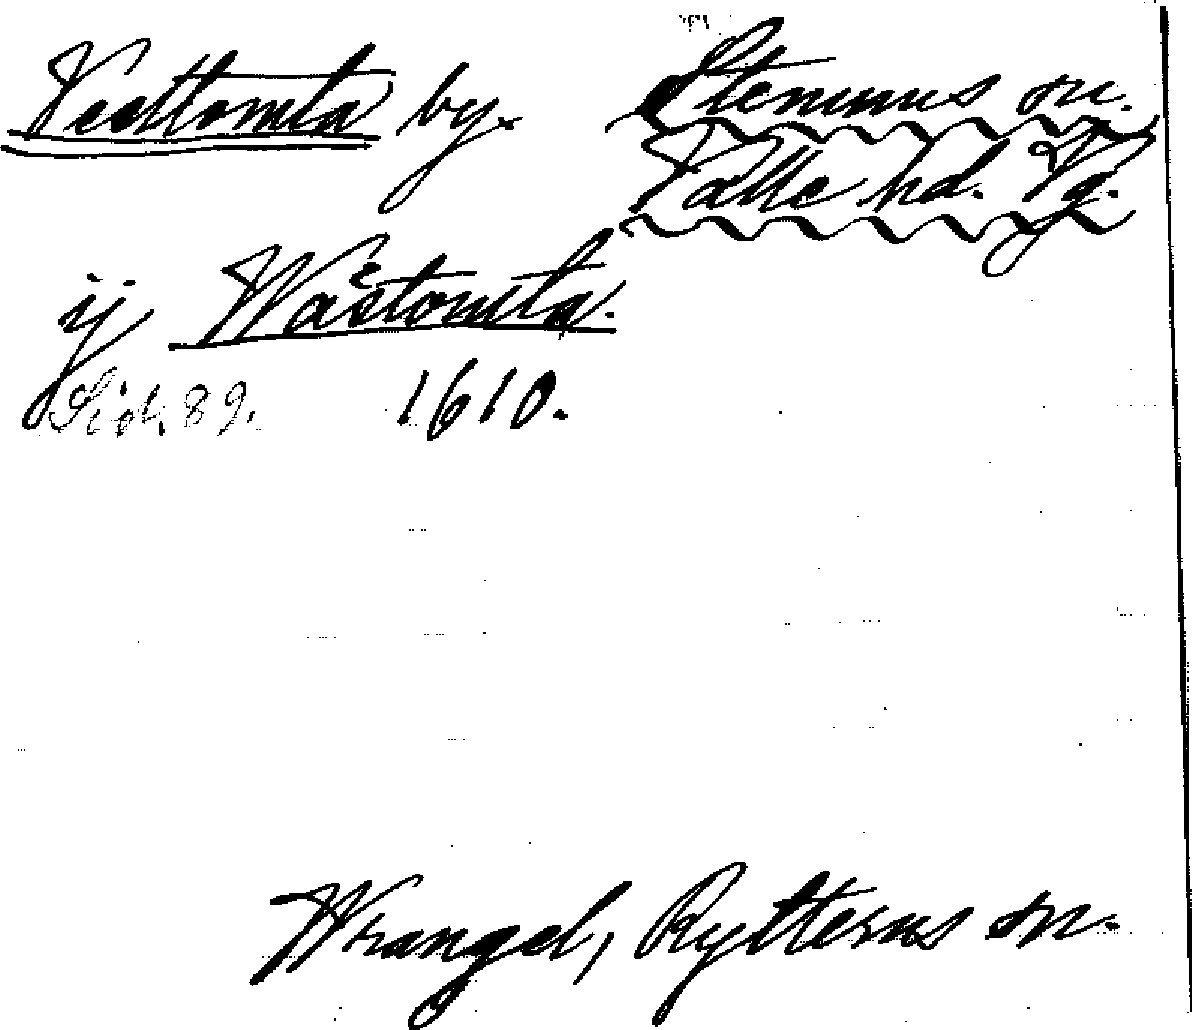 Vesttomta by. Steninus sn.
Valle hd. Vg.
ij Wästomta.
Sid. 89. 1610.
Wrangel, Rytterns sn.